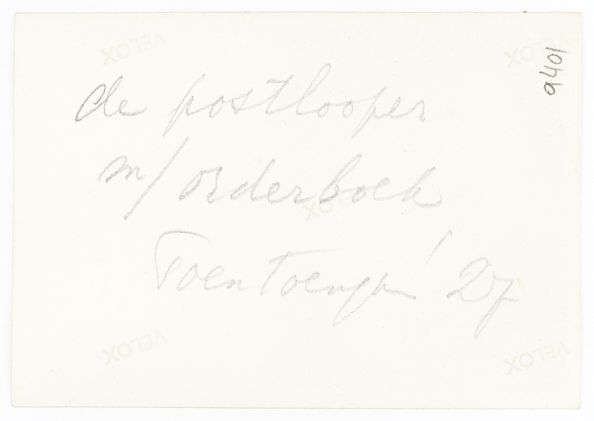 de postlooper
m/ orderboek
Toentoengan '27
9401
VELOX
VELOX
VELOX
VELOX
VELOX